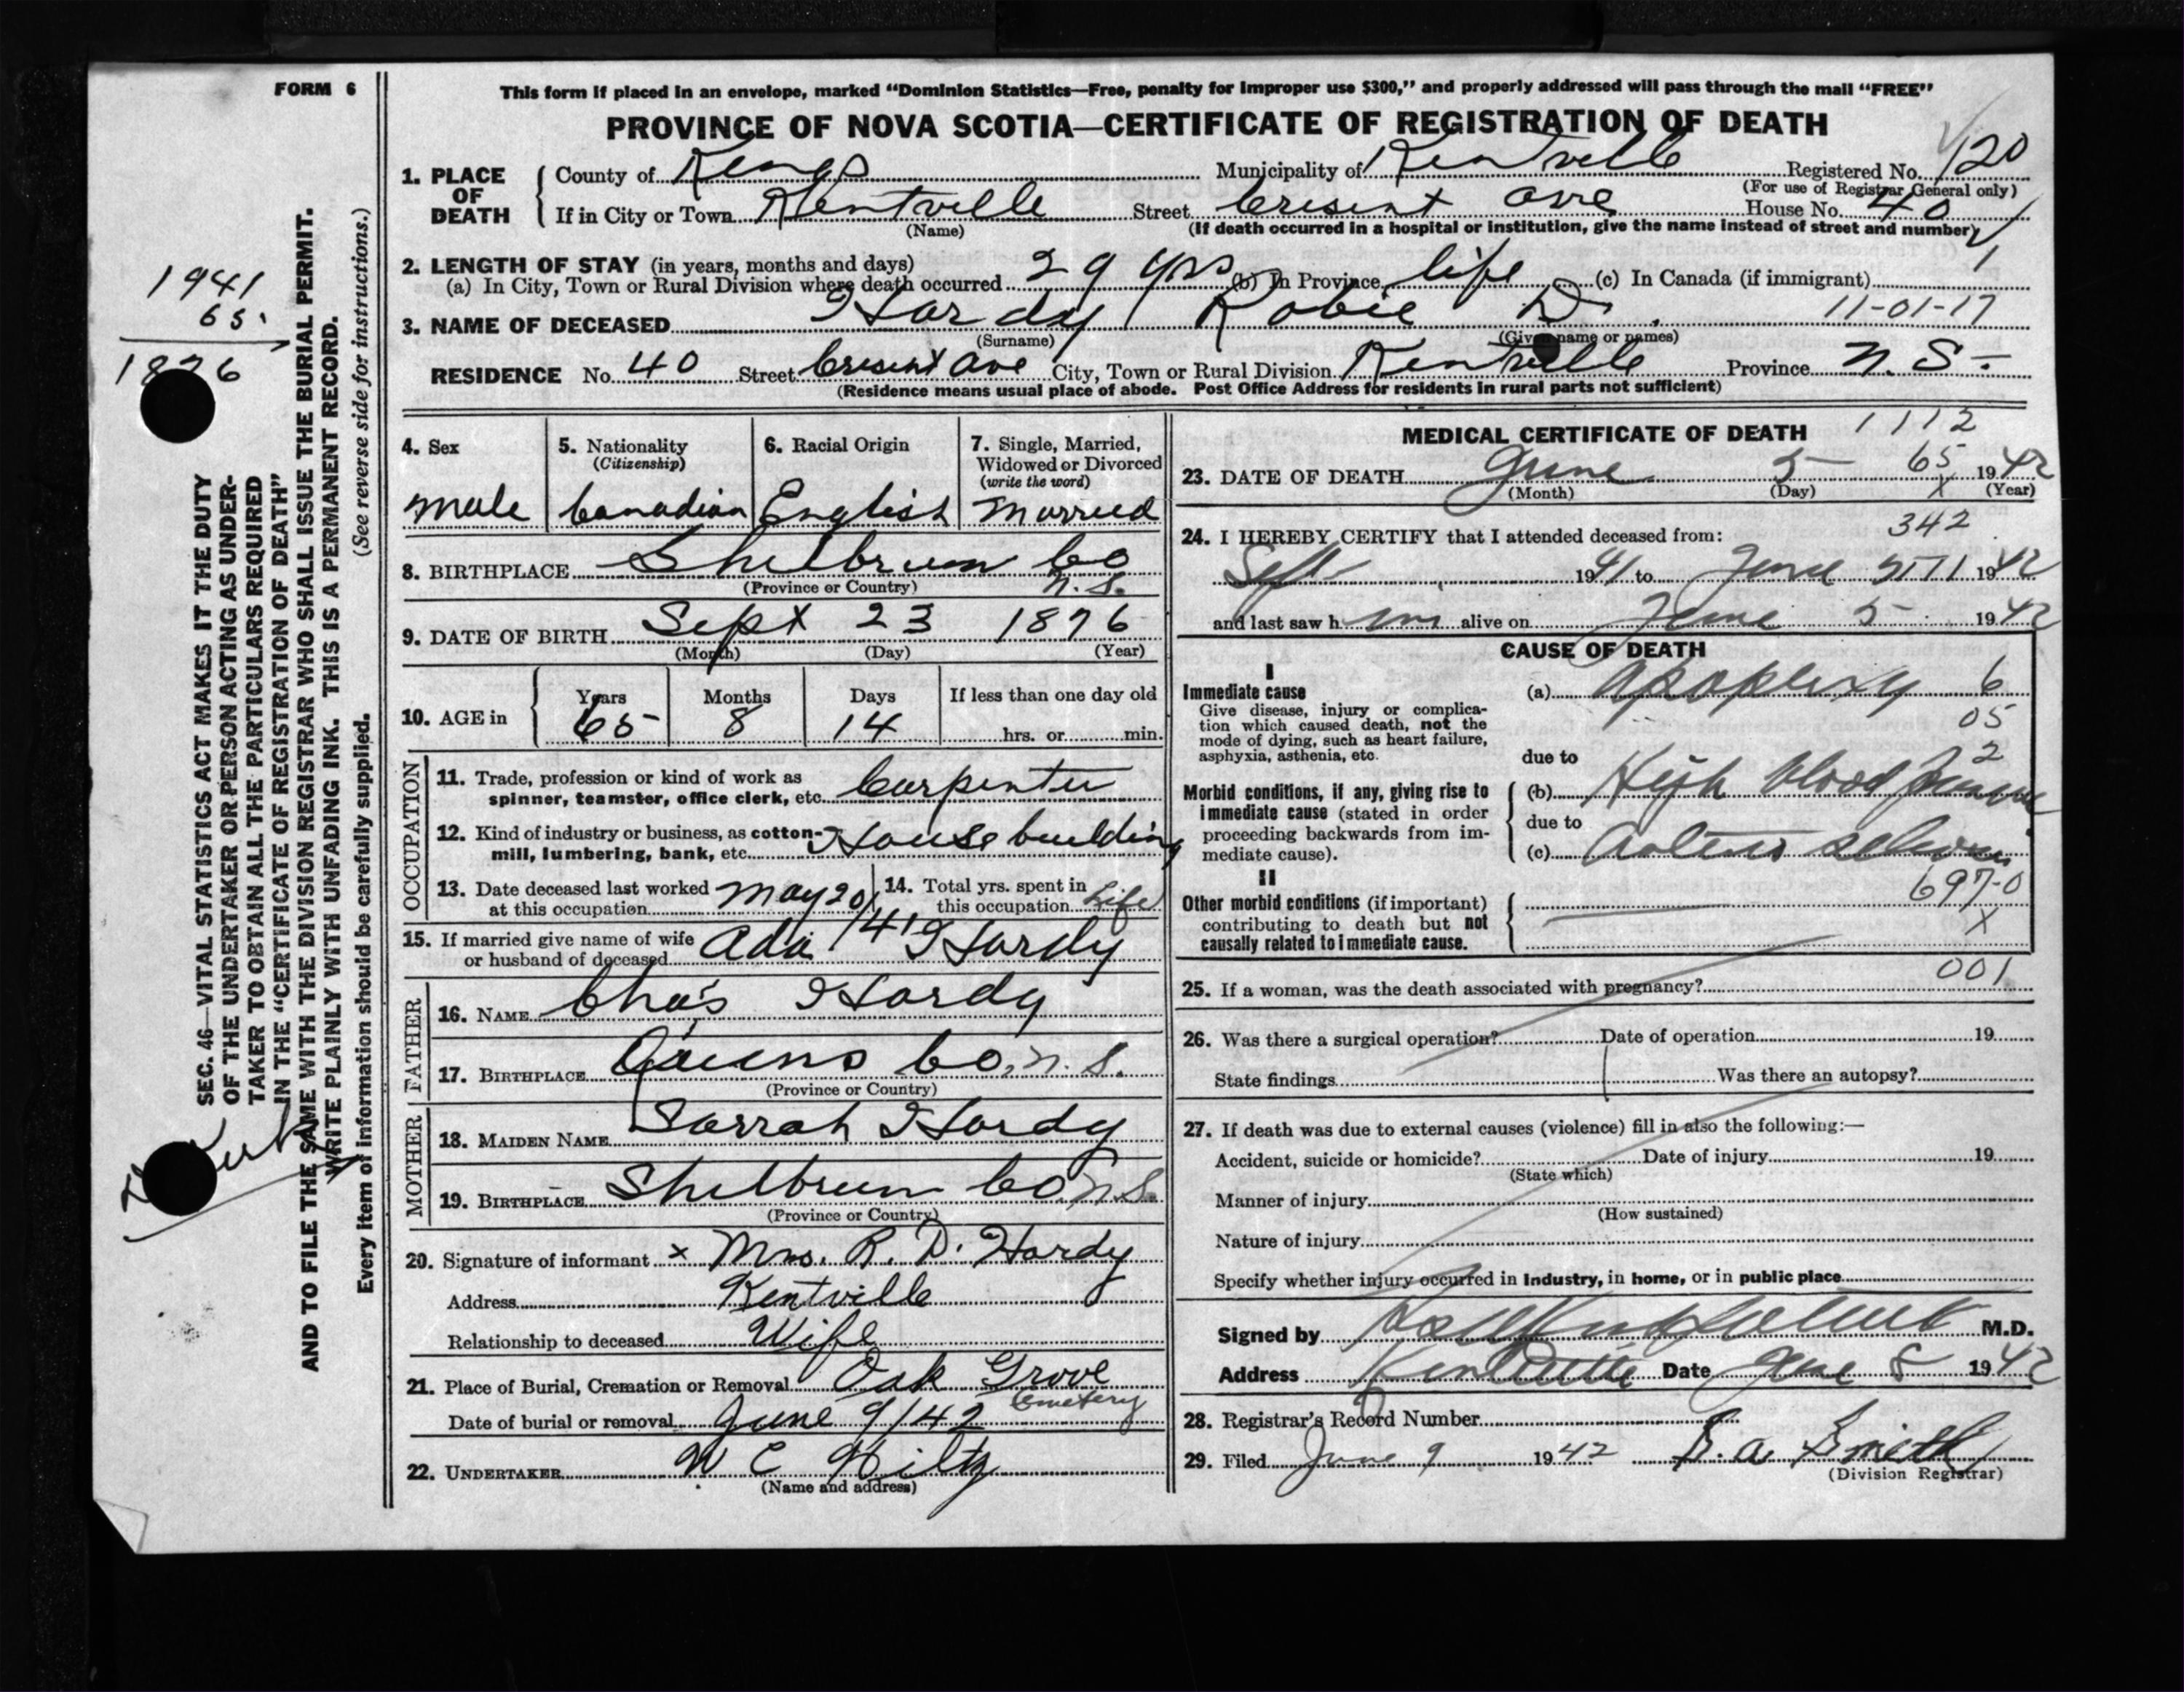 FORM 6
This form if placed in an envelope, marked “Dominion Statistics—Free, penalty for improper use $300,” and properly addressed will pass through the mail “FREE”
PROVINCE OF NOVA SCOTIA—CERTIFICATE OF REGISTRATION OF DEATH
1. PLACE OF DEATH
County of Kings Municipality of Kentville Registered No. 120
(For use of Registrar General only)
If in City or Town Kentville Street Cresent Ave House No. 40
(Name) (If death occurred in a hospital or institution, give the name instead of street and number)
2. LENGTH OF STAY (in years, months and days)
(a) In City, Town or Rural Division where death occurred 29 yrs (b) In Province life (c) In Canada (if immigrant)
11-01-17
3. NAME OF DECEASED Hardy Robie D.
(Surname) (Given name or names)
RESIDENCE No. 40 Street Cresent Ave City, Town or Rural Division Kentville Province N. S.
(Residence means usual place of abode. Post Office Address for residents in rural parts not sufficient)
4. Sex
male
5. Nationality
(Citizenship)
Canadian
6. Racial Origin
English
7. Single, Married,
Widowed or Divorced
(write the word)
Married
8. BIRTHPLACE Shelbrun Co
(Province or Country) N.S.
9. DATE OF BIRTH Sept 23 1876
(Month) (Day) (Year)
10. AGE in
Years Months Days If less than one day old
65 8 14 hrs. or min.
OCCUPATION
11. Trade, profession or kind of work as
spinner, teamster, office clerk, etc. Carpenter
12. Kind of industry or business, as cotton-
mill, lumbering, bank, etc. House building
13. Date deceased last worked
at this occupation May 20/41
14. Total yrs. spent in
this occupation Life
15. If married give name of wife
or husband of deceased Ada Hardy
FATHER
16. NAME Cha's Hardy
17. BIRTHPLACE Queens Co. N. S.
(Province or Country)
MOTHER
18. MAIDEN NAME Sarrah Hardy
19. BIRTHPLACE Shelbrun Co. N.S.
(Province or Country)
20. Signature of informant x Mrs. R. D. Hardy
Address Kentville
Relationship to deceased Wife
21. Place of Burial, Cremation or Removal Oak Grove
Cemetery
Date of burial or removal June 9/42
22. UNDERTAKER W C Hiltz
(Name and address)
MEDICAL CERTIFICATE OF DEATH 1112
65
23. DATE OF DEATH June 5 1942
(Month) (Day) x (Year)
24. I HEREBY CERTIFY that I attended deceased from: 342
Sept 1941 to June 5th 1942
and last saw him alive on June 5 1942
CAUSE OF DEATH
I
Immediate cause
Give disease, injury or complica-
tion which caused death, not the
mode of dying, such as heart failure,
asphyxia, asthenia, etc.
(a) Apoplexy 6
05
due to 2
Morbid conditions, if any, giving rise to
immediate cause (stated in order
proceeding backwards from im-
mediate cause).
(b) High blood pressure
due to
(c)
II
Other morbid conditions (if important)
contributing to death but not
causally related to immediate cause.
697-0
X
001
25. If a woman, was the death associated with pregnancy?
26. Was there a surgical operation? Date of operation 19
State findings Was there an autopsy?
27. If death was due to external causes (violence) fill in also the following:—
Accident, suicide or homicide? Date of injury 19
(State which)
Manner of injury
(How sustained)
Nature of injury
Specify whether injury occurred in industry, in home, or in public place
Signed by M.D.
Address Kentville Date June 8 1942
28. Registrar's Record Number
29. Filed June 9 1942 Smith
(Division Registrar)
1941
65
1876
SEC. 46—VITAL STATISTICS ACT MAKES IT THE DUTY
OF THE UNDERTAKER OR PERSON ACTING AS UNDER-
TAKER TO OBTAIN ALL THE PARTICULARS REQUIRED
IN THE “CERTIFICATE OF REGISTRATION OF DEATH”
AND TO FILE THE SAME WITH THE DIVISION REGISTRAR WHO SHALL ISSUE THE BURIAL PERMIT.
WRITE PLAINLY WITH UNFADING INK. THIS IS A PERMANENT RECORD.
Every item of information should be carefully supplied. (See reverse side for instructions.)